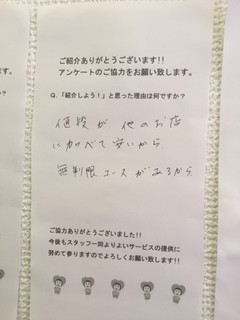 ご紹介ありがとうございます!!
アンケートのご協力をお願い致します。
Q.「紹介しよう!」と思った理由は何ですか?
値段が 他のお店
に加べて安いから
無制限コースがあるから
ご協力ありがとうございました!!
今後もスタッフ一同よりよいサービスの提供に
努めて参りますのでよろしくお願い致します!!